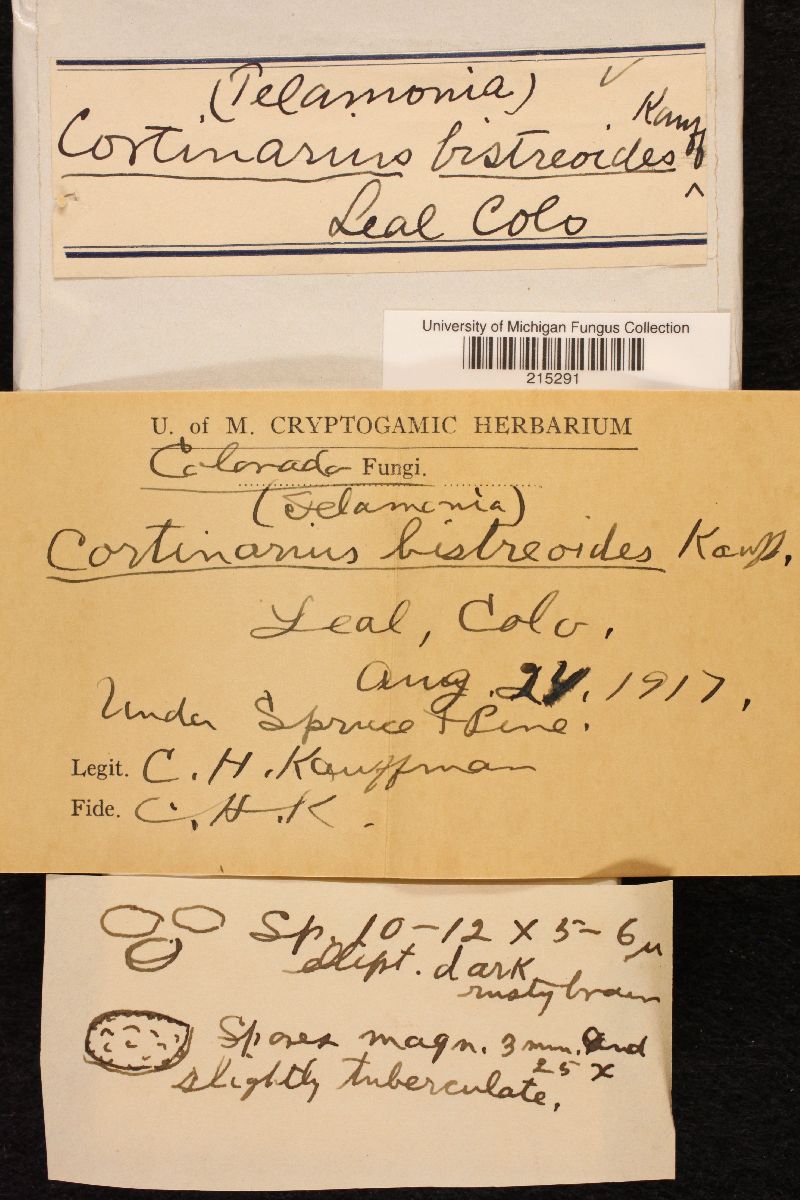 (Telamonia)
Kauff
Cortinarius bistreoides
^
Leal Colo
University of Michigan Fungus Collection
215291
U. of M. CRYPTOGAMIC HERBARIUM
Colorado Fungi.
(Telamonia)
Cortinarius bistreoides Kauff.
Leal, Colo.
Aug. 24, 1917,
Under Spruce + Pine.
Legit. C. H. Kauffman
Fide. C. H. K.
Sp. 10-12 x 5-6 µ
ellipt. dark
rusty brown
Spores magn. 3 mm. and
25 x
slightly tuberculate.